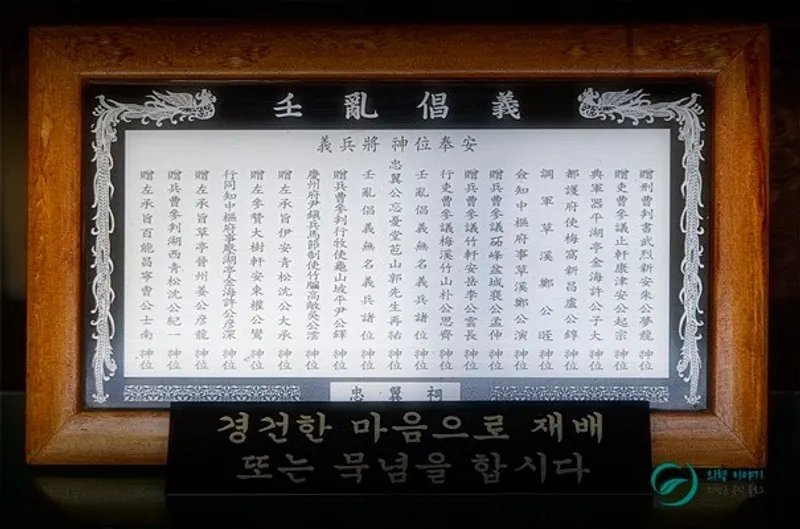 壬亂倡義
義兵將神位奉安
贈刑曹判書武烈新安朱公夢龍 神位
贈吏曹參議止軒康津安公起宗 神位
典軍器平湖亭金海許公子大 神位
都護府使梅窩新昌盧公錞 神位
調軍草溪鄭公 神位
僉知中樞府事草溪鄭公演 神位
贈兵曹參議峰盆城裵公孟伸 神位
贈兵曹參議竹軒安岳李公雲長 神位
行吏曹參議梅溪竹山朴公思齊 神位
壬亂倡義無名義兵諸位 神位
忠翼公忘憂堂苞山郭先生再祐 神位
壬亂倡義無名義兵諸位 神位
贈兵曹參判行牧使龜山坡平尹公鐸 神位
慶州府尹鎭兵馬節制使竹牖高敞吳公澐 神位
贈左承旨伊安青松沈公大承 神位
贈左參贊大樹軒安東權公鸞 神位
行同知中樞府事湖亭金海許公彦深 神位
贈左承旨草亭晉州姜公彦龍 神位
贈兵曹參判湖西青松沈公紀一 神位
贈左承旨百能昌寧曺公士南 神位
忠翼祠
경건한 마음으로 재배
또는 묵념을 합시다
의령 이야기